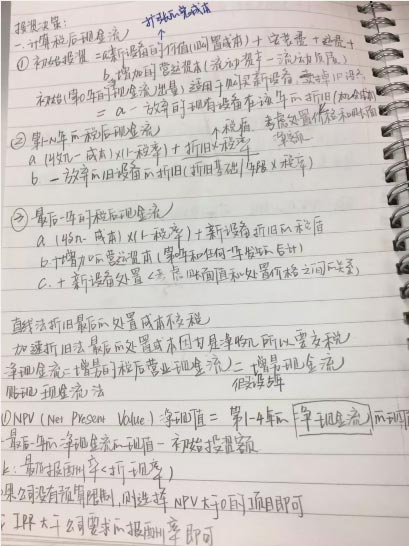 投资决策:
一、计算税后现金流
① 初始投资 = a 新设备的价值(购置成本) + 安装费 + 运费 +
b 增加的营运资本(流动资本 - 流动负债)
初始(第0年的现金流出量) 适用于购买新设备
= a - 放弃的现有设备在该年的折旧
② 第1-N年的税后现金流
税盾
a (收入 - 成本) × (1-税率) + 折旧 × 税率
b - 放弃的旧设备的折旧(折旧基础/年限 × 税率)
③ 最后一年的税后现金流
a (收入 - 成本) × (1-税率) + 新设备折旧的税盾
b + 增加的营运资本
c. + 新设备处置 账面值和处置价格之间的关系
直线法折旧最后的处置成本 税
加速折旧法最后的处置成本因为是净收入所以要交税
净现金流 = 增量的税后营业现金流 = 增量现金流
贴现现金流法
① NPV (Net Present Value): 净现值 = 第1-4年的 净现金流 的现值
最后一年的净现金流的现值 - 初始投资额
k: 最低报酬率<折现率>
果公司没有预算限制,则选择 NPV大于0的项目即可
IRR 大于公司要求的报酬率即可